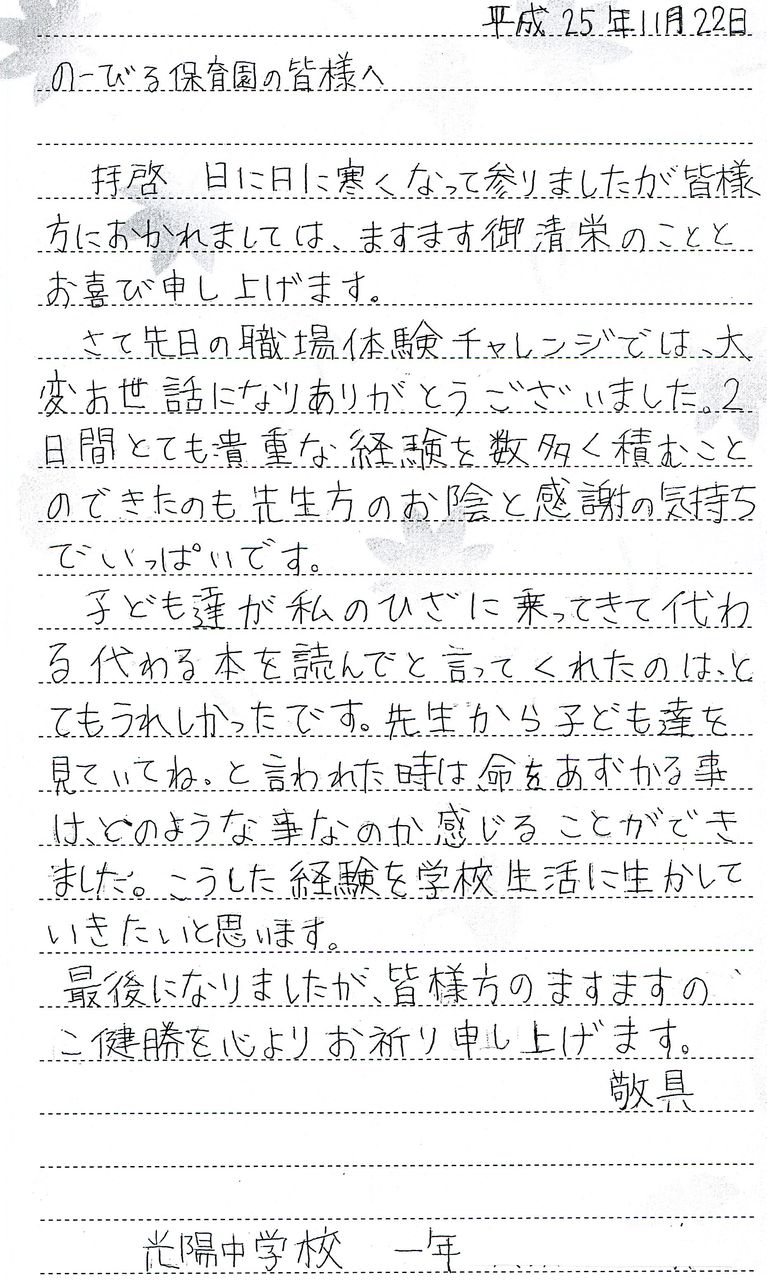 平成25年11月22日
のーびる保育園の皆様へ
拝啓 日に日に寒くなって参りましたが皆様
方におかれましては、ますます御清栄のことと
お喜び申し上げます。
さて先日の職場体験チャレンジでは、大
変お世話になりありがとうございました。2
日間とても貴重な経験を数多く積むこと
のできたのも先生方のお陰と感謝の気持ち
でいっぱいです。
子ども達が私のひざに乗ってきて代わ
る代わる本を読んでと言ってくれたのは、と
てもうれしかったです。先生から子ども達を
見ていてね。と言われた時は、命をあずかる事
は、どのような事なのか感じることができ
ました。こうした経験を学校生活に生かして
いきたいと思います。
最後になりましたが、皆様方のますますの
ご健勝を心よりお祈り申し上げます。
敬具
光陽中学校 一年